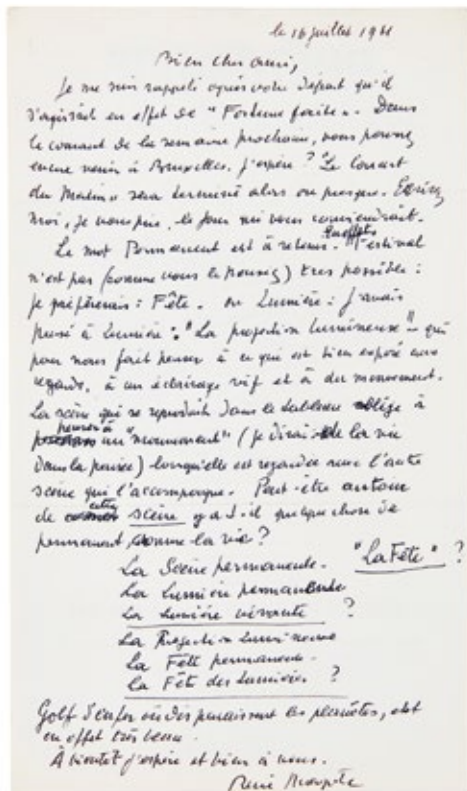 le 16 juillet 1961
Bien cher ami,
Je me suis rappelé après votre départ qu'il
s'agissait en effet de "Fortune faite". Dans
le courant de la semaine prochaine, vous pouvez
encore venir à Bruxelles, j'espère ? Le
du Matin" sera terminé alors ou presque. Ecrivez
moi, je vous prie, le jour qui vous conviendrait.
Le mot Permanent est à retenir. Festival
n'est pas (comme vous le pensez) très possible :
je préférerais : Fête. ou Lumière : j'avais
pensé à Lumière : "La projection lumineuse" qui
pour nous fait penser à ce qui est bien exposé aux
regards, à un éclairage vif et à du mouvement.
La scène qui se reproduit dans le tableau oblige à
penser à un "mouvement" (je dirai de la vie
dans la pensée) lorsqu'elle est regardée avec l'autre
scène qui l'accompagne. Peut-être autour
de cette scène y a-t-il quelque chose de
permanent, comme la vie ?
"La Fête" ?
La Scène permanente.
La Lumière permanente
La Lumière vivante ?
La Projection lumineuse
La Fête permanente.
La Fête des Lumières ?
où disparaissent les planètes, est
en effet très beau.
A bientôt j'espère et bien à vous.
René Magritte